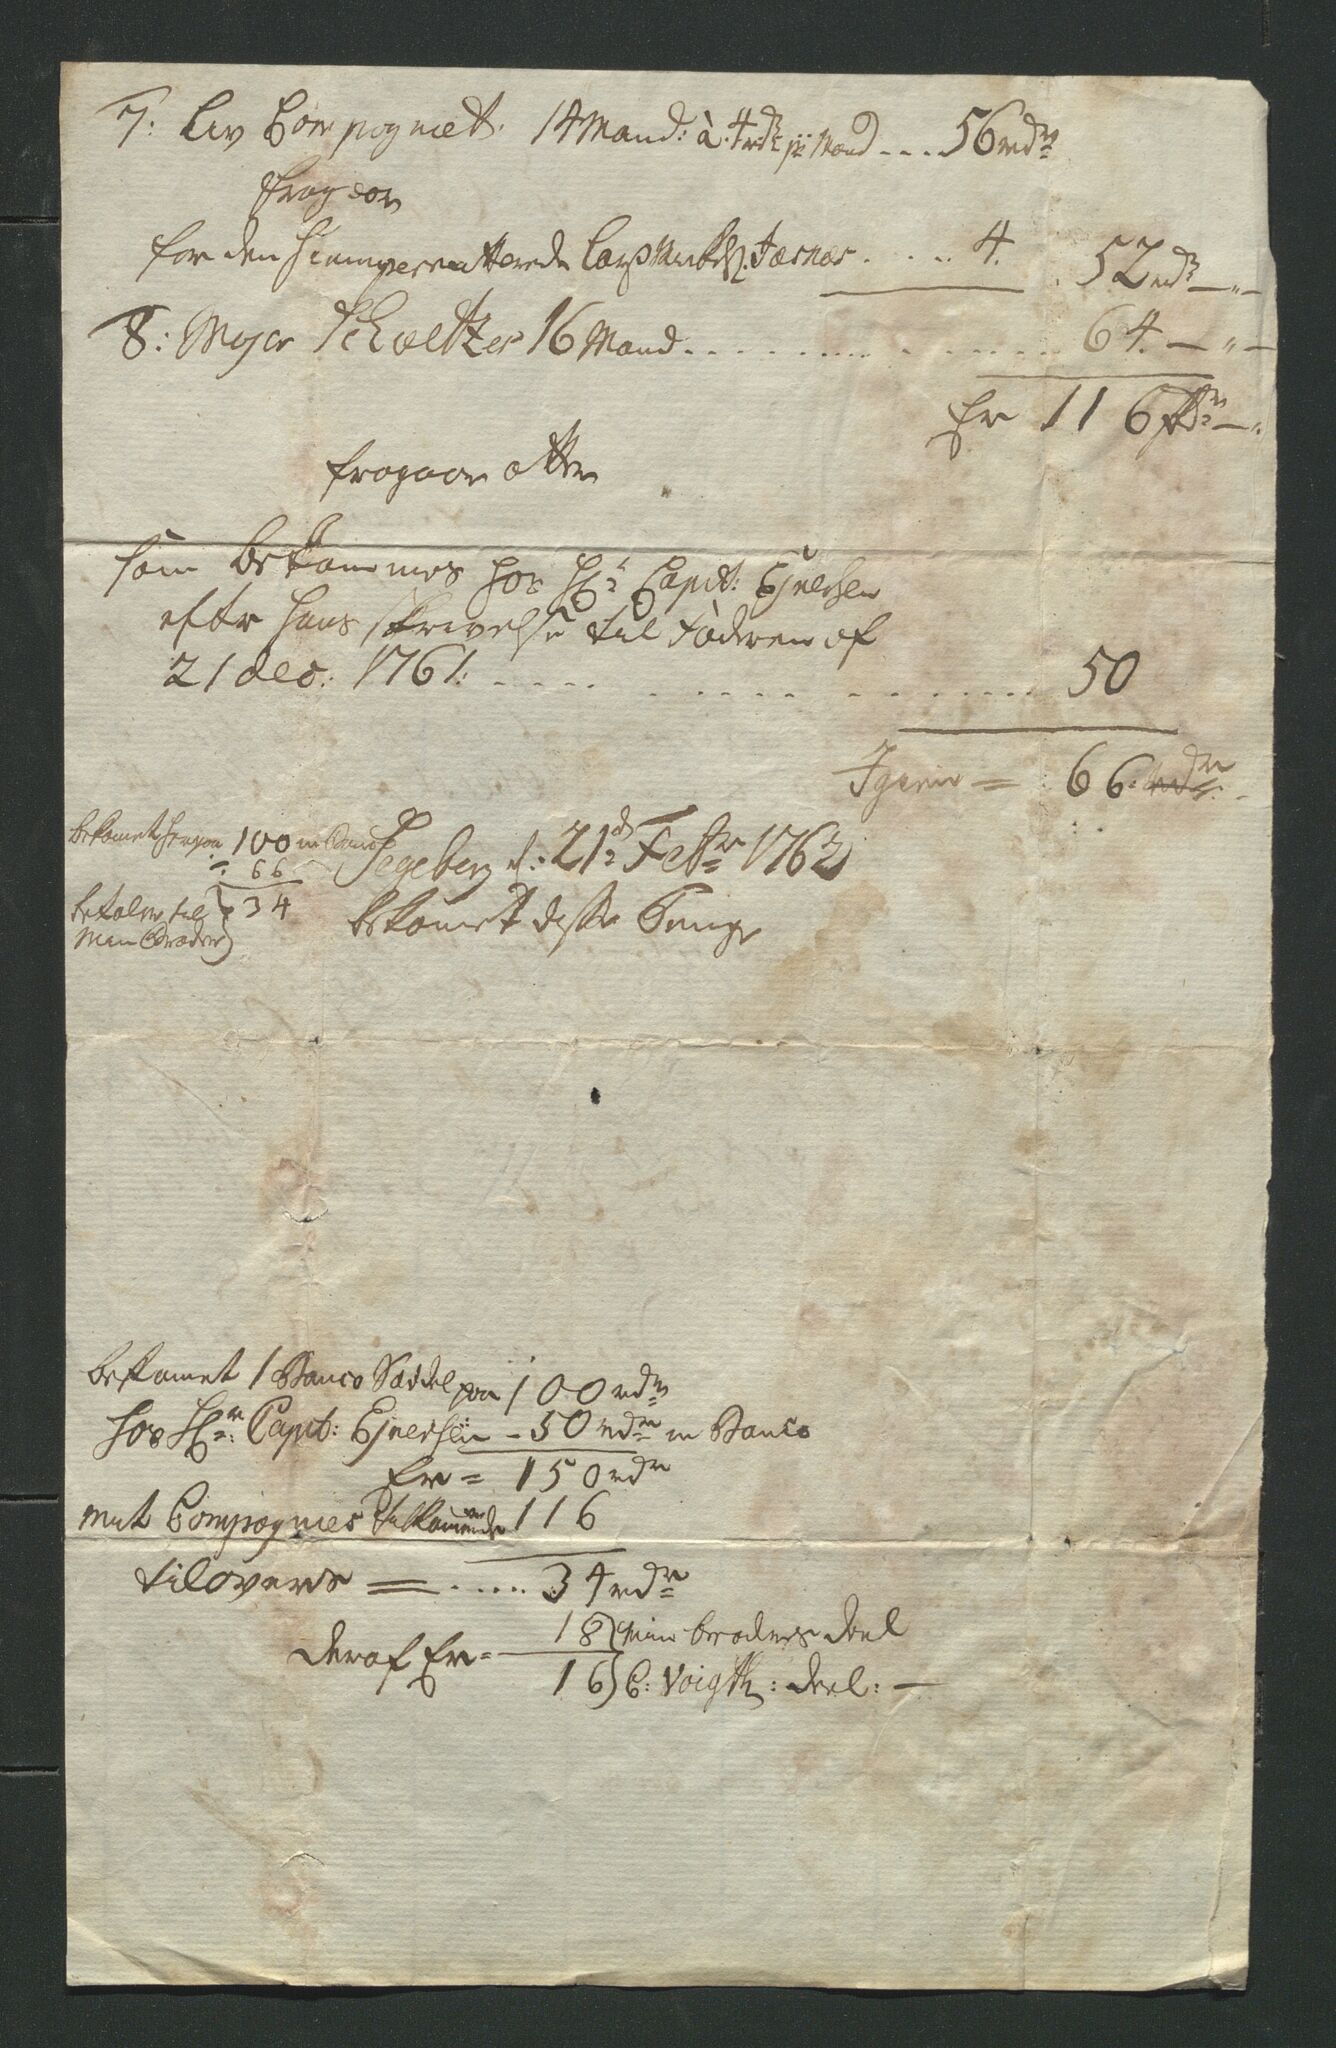 7: Liv Compagniet. 14 Mand: à 4 rdr pr Mand ... 56 rdr
fragaar
for den hiempermitterede Lars ... 4. 52 rdr — " —
8: Major Scholtzes 16 Mand ... 64. — " —
Er 116 Rdr —
fragaar atter
som bekommes hos Hr: Capit: Ejnersen
efter hans skrivelse til Faderen af
21 dec: 1761: ... 50
Igien = 66: rdr
bekomet herpaa 100 in Banco
÷ 66
betaler til 34
Min Broder
Segeberg d: 21d Febr 1762
bekomet disse Penge
bekomet 1 Banco Seddel paa 100 rdr
hos Hr: Capit: Ejnersen - 50 rdr in Banco
Er = 150 rdr
mit Compagnies tilkommende 116
tilovers = ..... 34 rdr
deraf Er = 18 Min broders deel
16 C: Voigth: deel: —